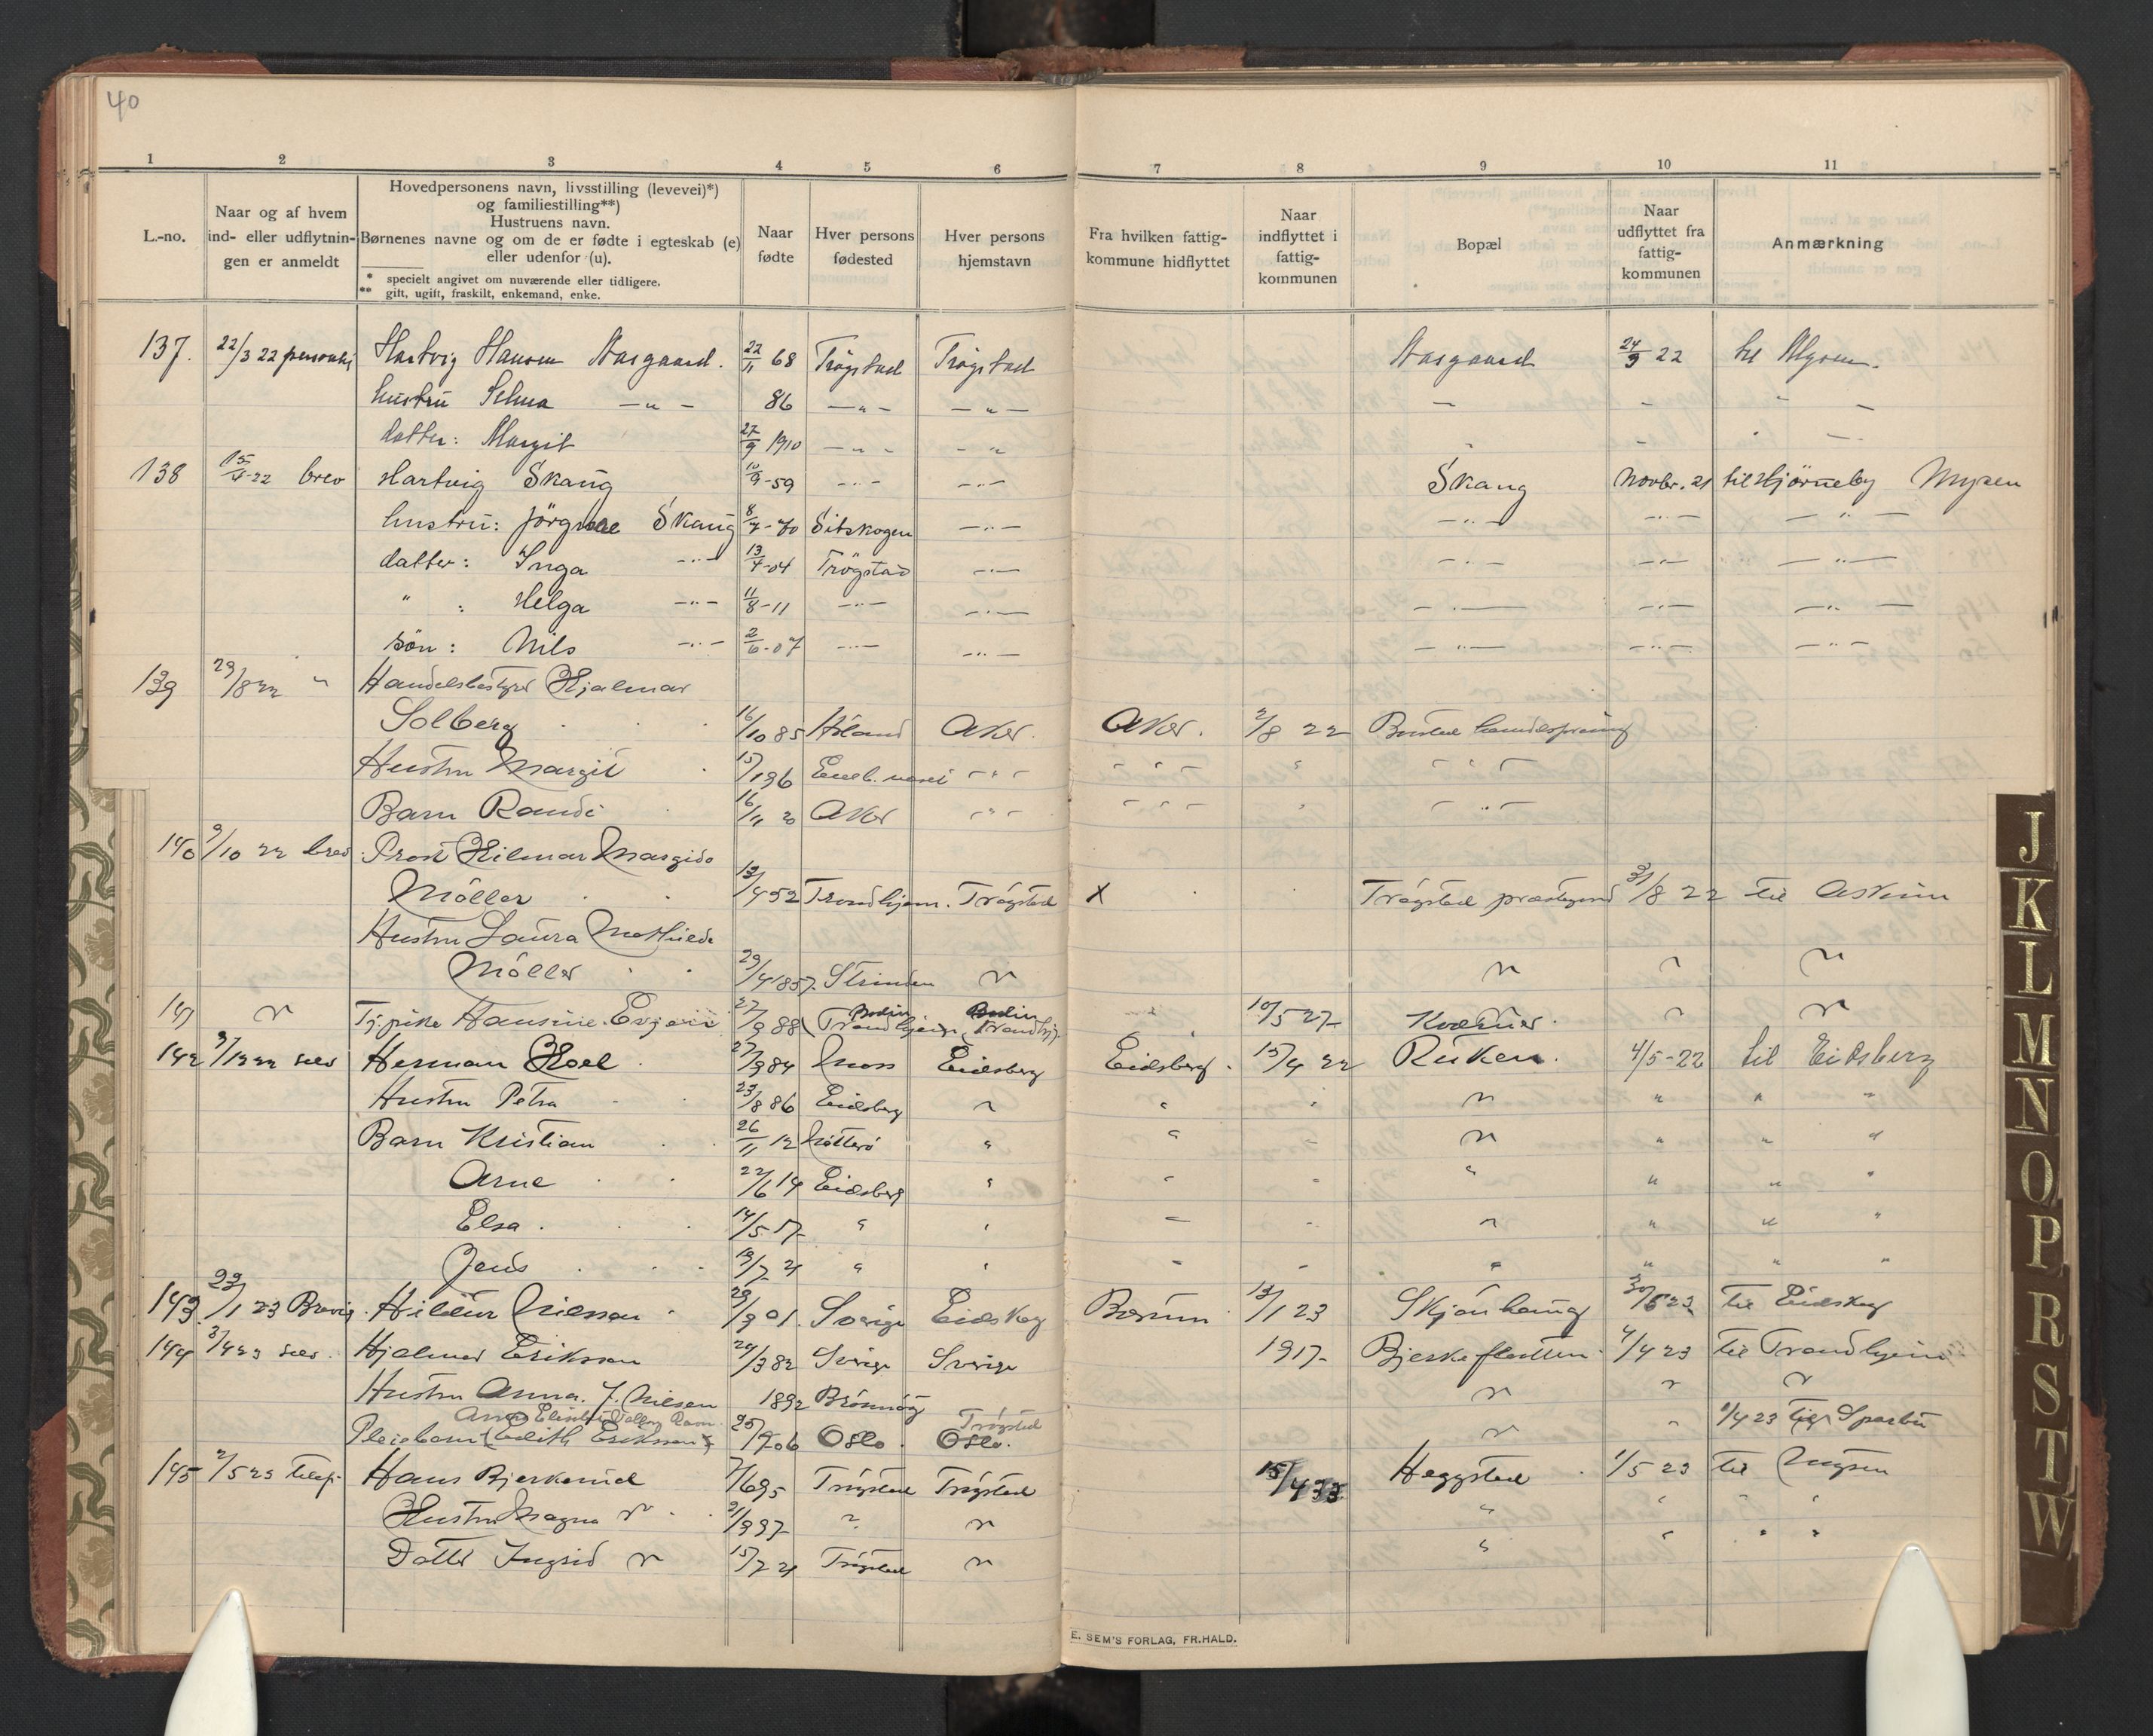 40
1 2 3 4 5 6 7 8 9 10 11
L.-no.
Naar og af hvem
ind- eller udflytnin-
gen er anmeldt
Hovedpersonens navn, livsstilling (levevei)*)
og familiestilling**)
Hustruens navn.
Børnenes navne og om de er fødte i egteskab (e)
eller udenfor (u).
* specielt angivet om nuværende eller tidligere.
** gift, ugift, fraskilt, enkemand, enke.
Naar
fødte
Hver persons
fødested
Hver persons
hjemstavn
Fra hvilken fattig-
kommune hidflyttet
Naar
indflyttet i
fattig-
kommunen
Bopæl
Naar
udflyttet fra
fattig-
kommunen
Anmærkning
137. 22/3 22 Hartvig Hansen Aasgaard. 22/11 68 Trøgstad Trøgstad Aasgaard 24/9 22 til Mysen.
hustru Selma — " — 86 — " — — " — — - " —
datter: Margit 27/9 1910 — " - - " " - ' —
138 15/4-22 brev Hartvig Skaug 10/9-59 — " — — " — Skaug Novbr. 21 til Hjörneby Mysen
hustru: Skaug 8/7-70 Sitskogen — " — — " — — " — — " —
datter: Inga — " — 13/4-04 Trögstad — " — — " — — " — — " —
" : Helga — " — 11/8-11 — " — — " — — " — — " — — " —
sön: Nils — " — 2/6-07 — " — — " — — " — — " — — " —
139 29/8 22 " Handelsbestyrer Hjalmar
Solberg 16/10 85 Høland Aker. Aker. 2/8 22 Båstad
Hustru Margit 15/1 96 - " - - " - " - " -
Barn Randi 16/11 20 Aker - " - - " - " - " -
140 9/10 22 brev Prost Hilmar
Møller 13/4 52 Trondhjem. Trøgstad X Trøgstad prestegard 31/8 22 til Askim
Hustru Laura Mathilde
Møller 29/4 1857. Strinden " " " "
141 " Tj.pike Hansine 27/9 88 Trondhjem Bodin Trondhj. Bodin 10/5 27 " "
142 9/12 22 selv Herman Hoel 27/9 84 Moss Eidsberg Eidsberg. 15/4 22 Ruken. 4/5-22 til Eidsberg
Hustru Petra 23/8 86 Eidsberg " " " " " " "
Barn Kristian 26/11 12 Nøtterø " " " " " " "
Arne 22/6 14 Eidsberg " " " " " " "
Elsa. 14/5 17 " " " " " " " "
Jens 19/7 21 " " " " " " " "
143 23/1 23 Hildur Nilssen 29/9 01. Sverige Eidskog Bærum 13/1 23 Skjønhaug 30/6 23 til Eidskog
144 3/4 23 selv Hjalmar Eriksson 24/3 82 Sverige Sverige 1917 Bjerkeflotten 4/4 23 til Trondhjem
Hustru Anna. J. Nilsen 1892 Brønnøy " " "
Trøgstad
Pleiebarn (Edith Eriksson) 25/9 06 Oslo. Oslo. " " 1/4 23 til Sparbu
145 2/5 23 telef. Hans Bjerkerud 7/6 95 Trøgstad Trøgstad 15/4 33 Heggstad 1/5 23 til Mysen
Hustru Magna " 21/9 97 " " " " " "
Datter Ingrid " 15/7 21 Trøgstad " " " " "
E. SEM'S FORLAG, FR.HALD.
J
K
L
M
N
O
P
R
S
T
W